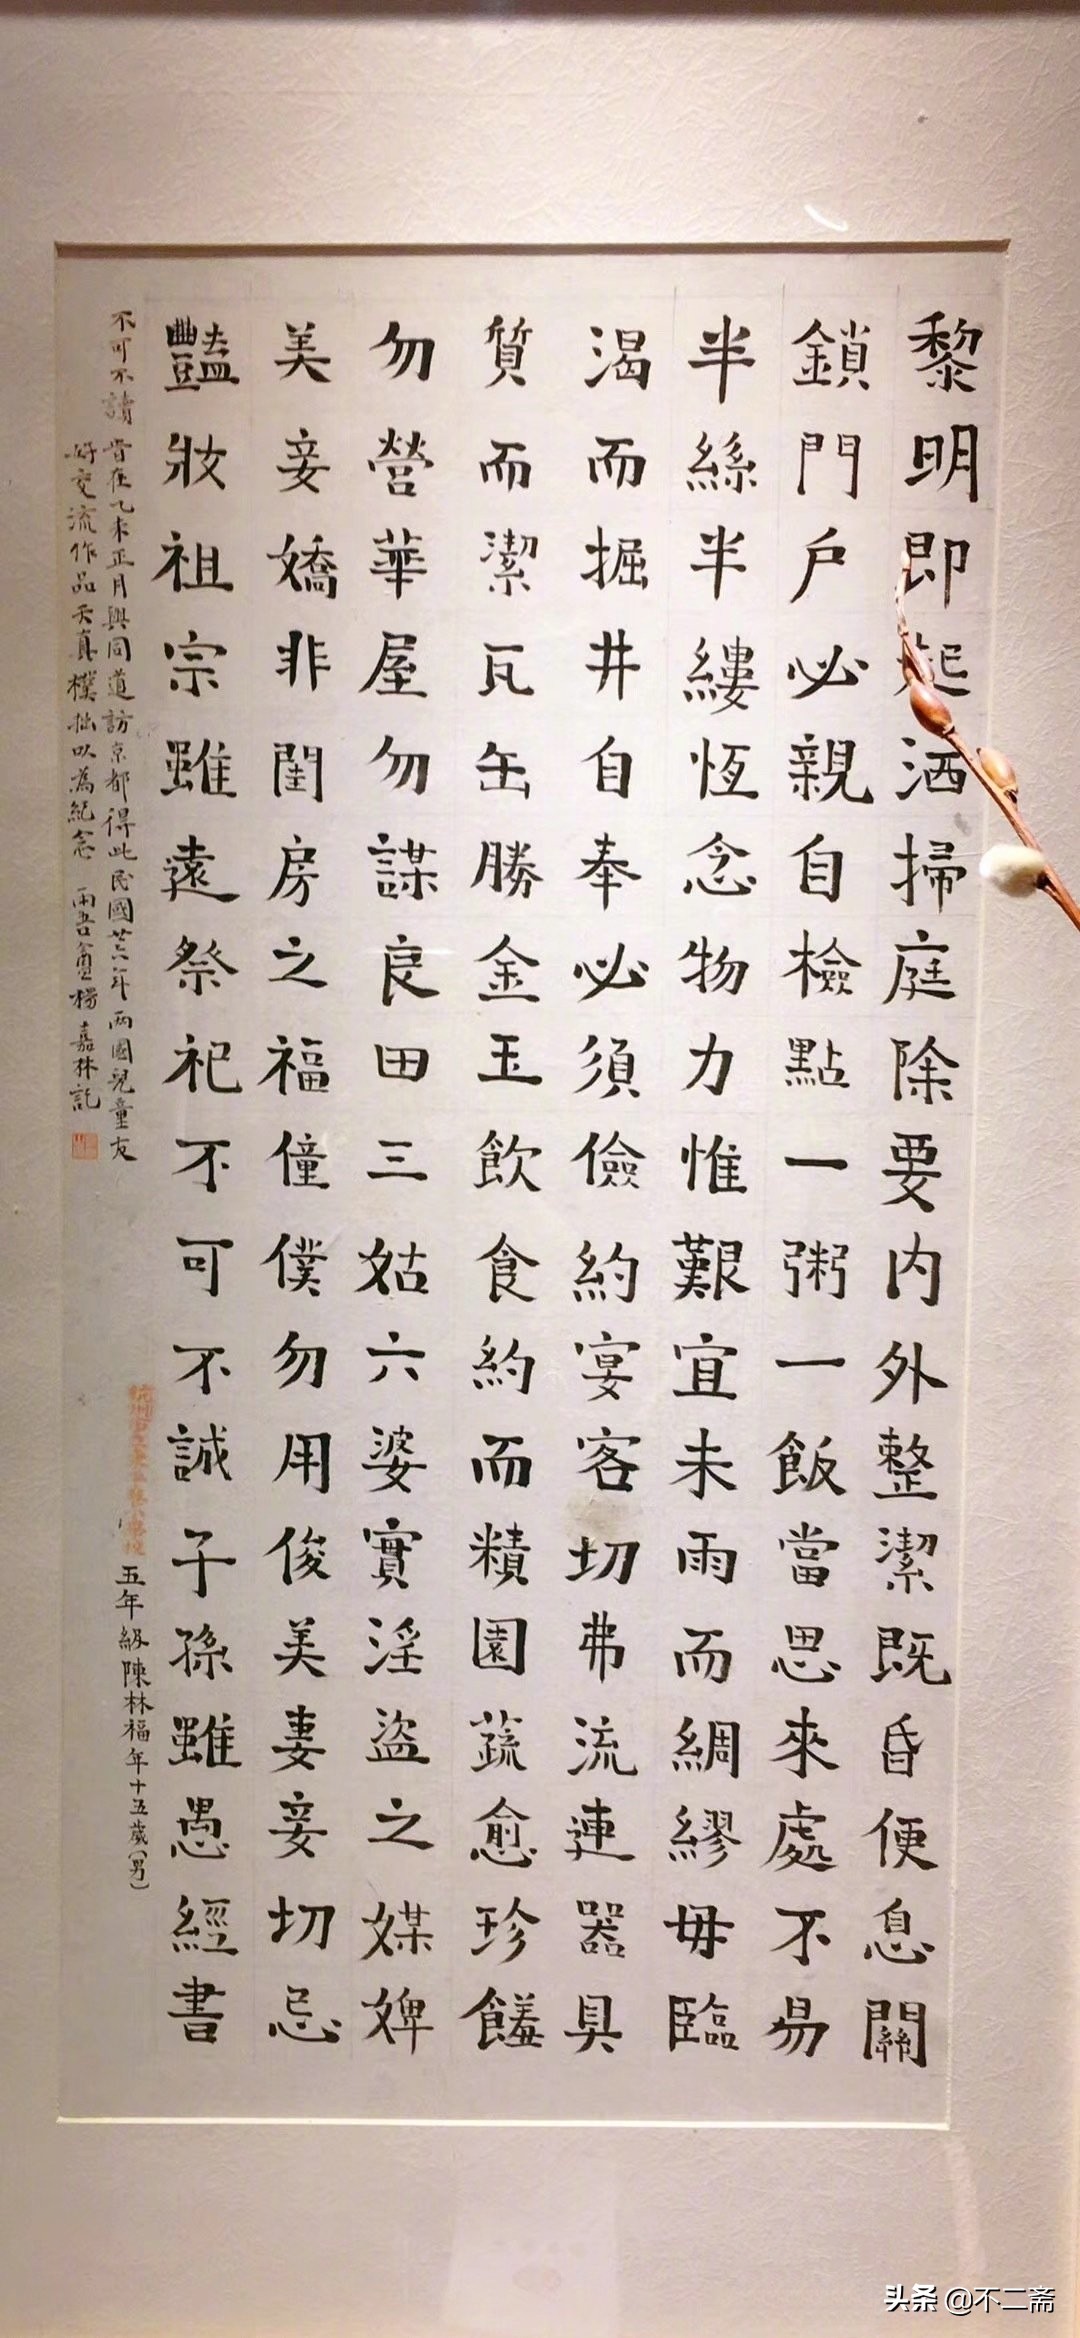 黎明即起洒掃庭除要内外整潔既昏便息關
鎖門户必親自檢點一粥一飯當思來處不易
半絲半縷恆念物力惟艱宜未雨而綢繆毋臨
渴而掘井自奉必須儉約宴客切弗流連器具
質而潔瓦缶勝金玉飲食約而精園蔬愈珍饈
勿營華屋勿謀良田三姑六婆實淫盜之媒婢
美妾嬌非閨房之福僮僕勿用俊美妻妾切忌
豔妝祖宗雖遠祭祀不可不誠子孫雖愚經書
不可不讀
五年級陳林福年十五歲(男)
昔在乙未正月與同道訪京都得此民國廿六年兩國兒童友
好交流作品天真樸拙以為紀念 楊嘉林記
头条 @不二斋